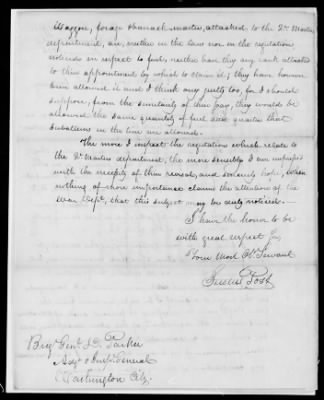 Waggon, forage & barrack master, attached to the Qr Master
department, are neither in the law nor in the regulation
noticed in respect to fuel, neither have they any rank attached
to their appointment by which to claim it; they have however
been allowed it and I think very justly too, for I should
suppose, from the similarity of their pay, they would be
allowed the same quantity of fuel and quarters that
Subalterns in the line are allowed.
The more I inspect the regulations which relate
to the Qr Masters department, the more sensibly I am impressed
with the necessity of their revisal, and sincerely hope, when
nothing of more importance claims the attention of the
War Dept, that this subject may be duly noticed.
I have the honor to be
with great respect Sir
Your Most Ob. Servant
Post
Brigr Genl D. Parker
Adjt & Insp. General
Washington City.